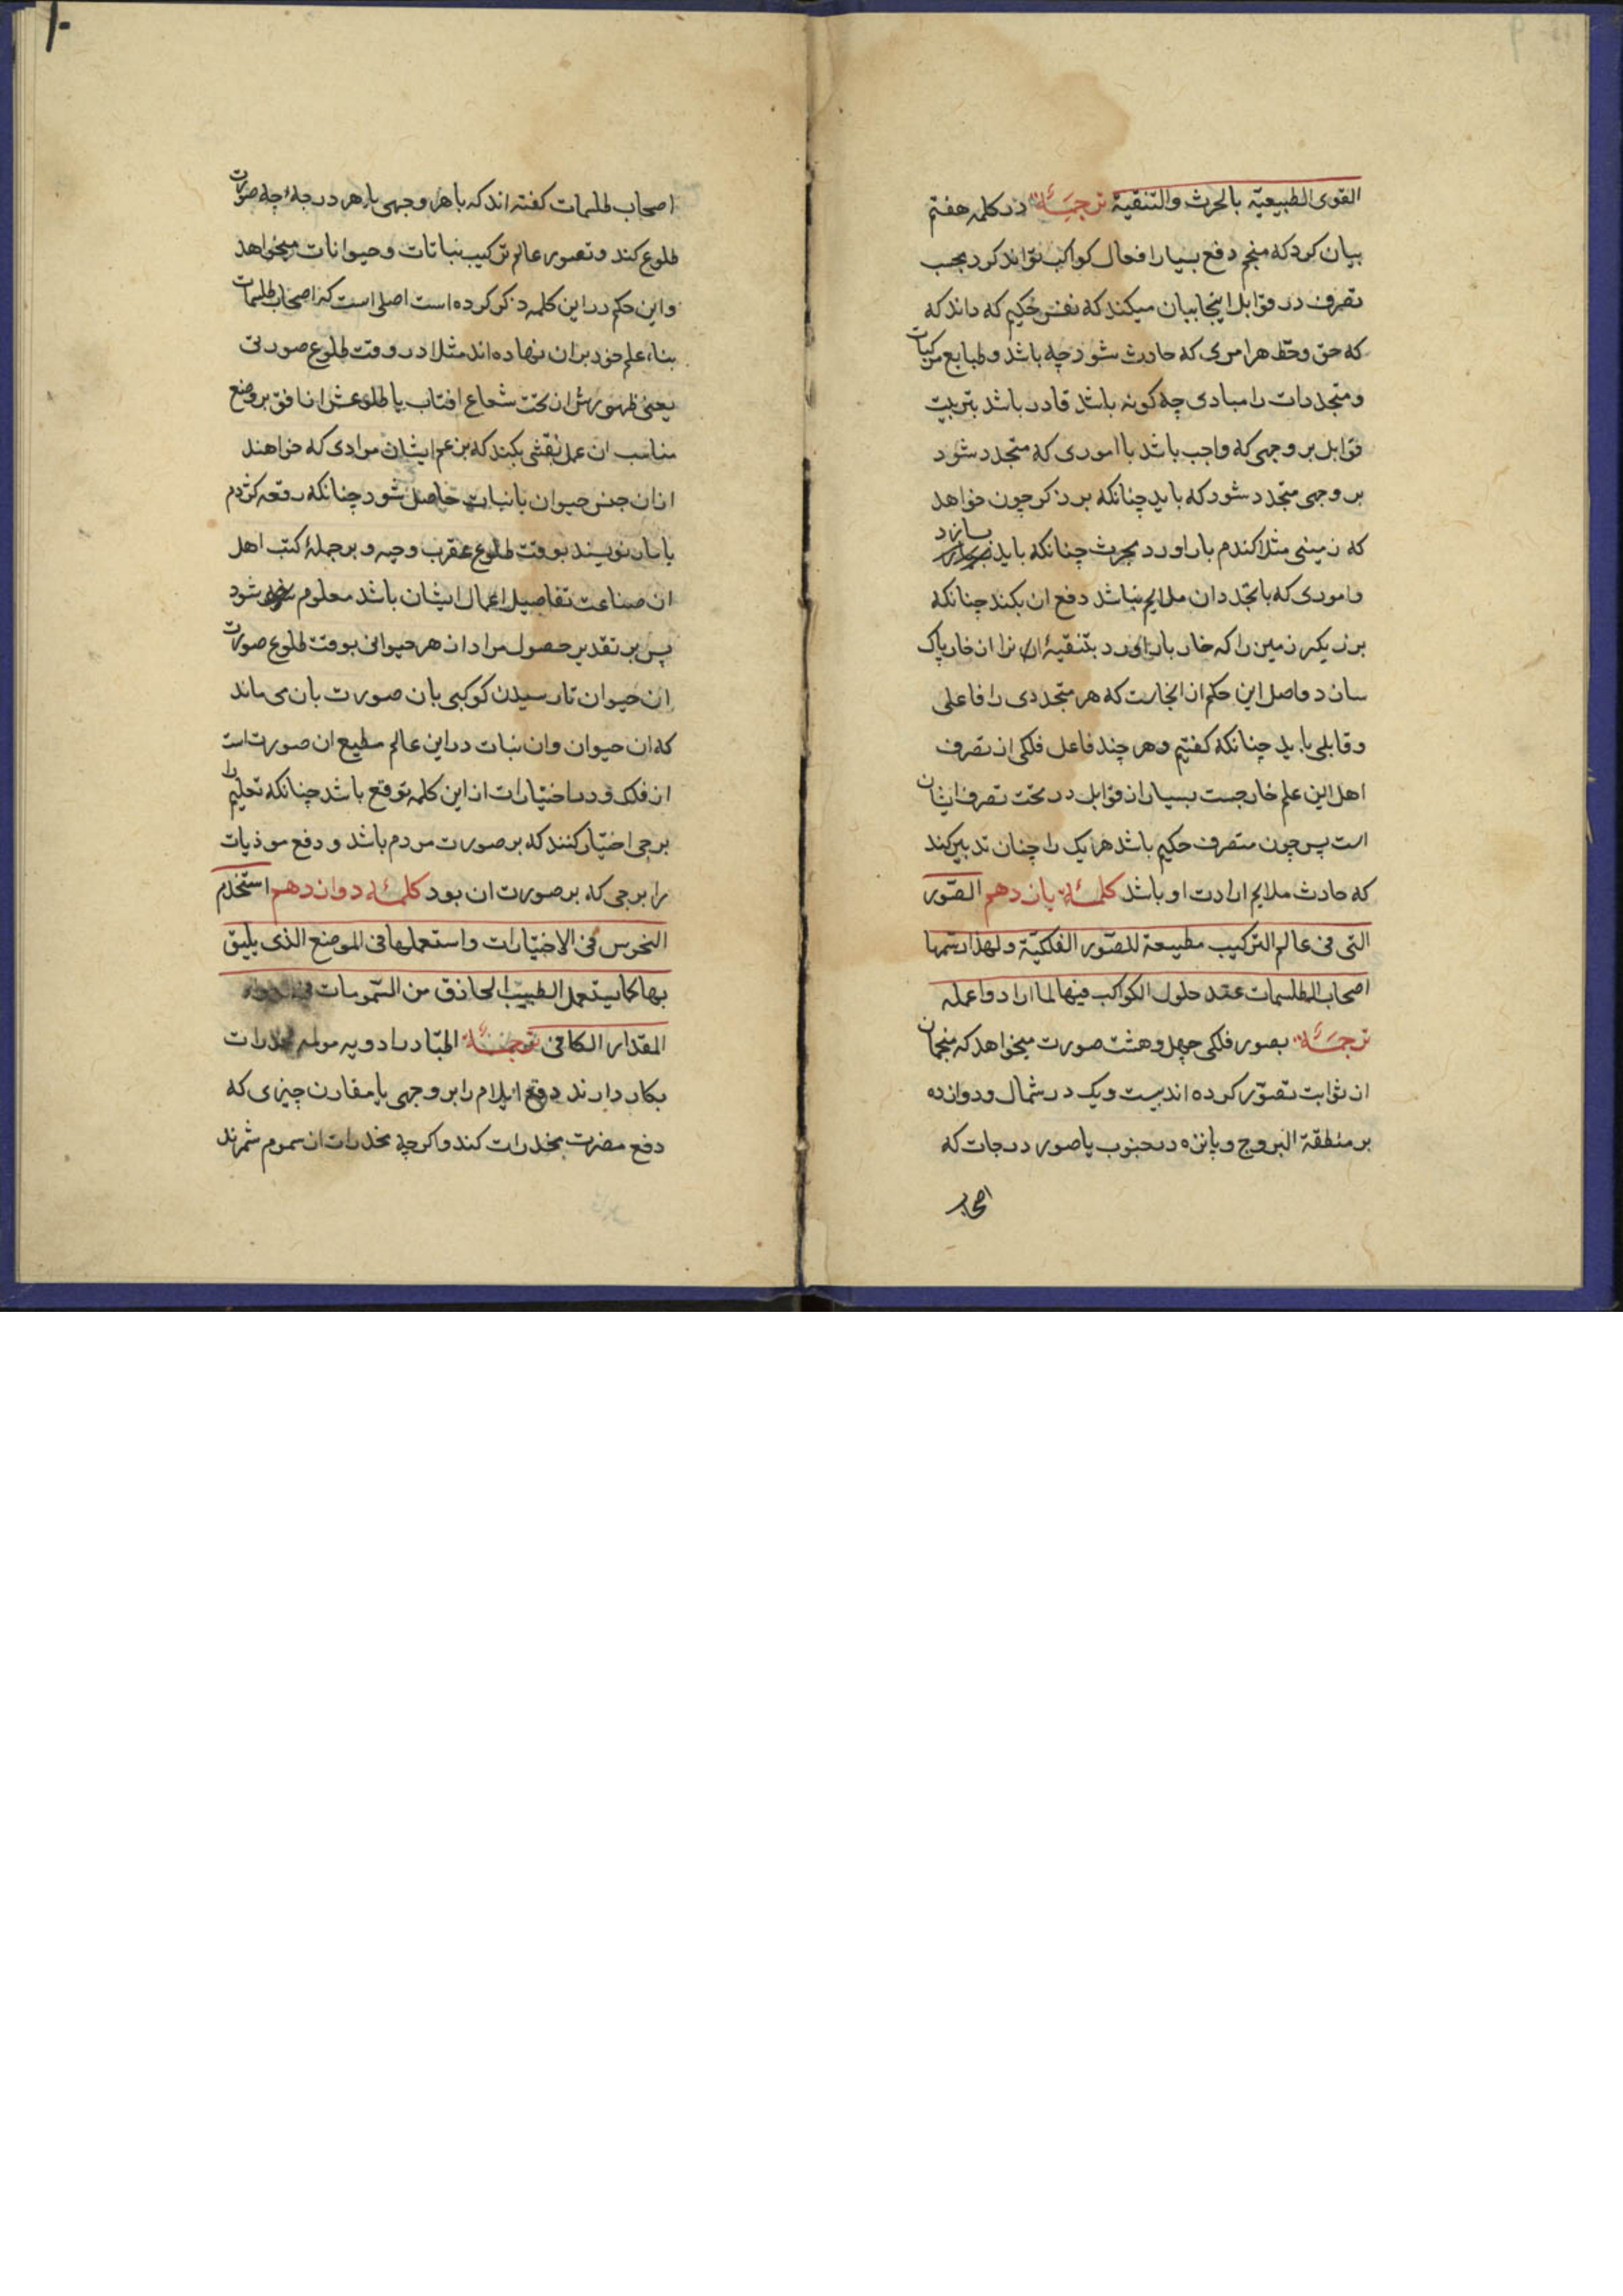 القوی الطبیعیّة بالحرث والتنقیة ترجمهٔ در کلمه هفتم
بیان کرد که منجم دفع بسیار افعال کواکب تواند کرد بحسب
تصرف در قوابل اینجا بیان میکند که نفس حکیم که داند که
که حق وحظ هر امری که حادث شود چه باشد و طبایع مرکبات
ومتجددات را مبادی چه کونه باشد قادر باشد بتربیت
قوابل بر وجهی که واجب باشد با اموری که متجدد شود
بر وجهی متجدد شود که باید چنانکه برزکر چون خواهد
که زمینی مثلا کندم بار اورد بحرث چنانکه باید بسازد
واموری که با تجدد ان ملایم نباشد دفع ان بکند چنانکه
برزیکر زمین را که خار بار اورد بتنقیهٔ ان را از خار پاک
سازد واصل این حکم از انجاست که هر متجددی را فاعلی
وقابلی باید چنانکه کفتیم وهر چند فاعل فلکی از تصرف
اهل این علم خارجست بسیار از قوابل در تحت تصرف ایشان
است پس چون متصرف حکیم باشد هر یک را چنان تدبیر کند
که حادث ملایم ارادت او باشد کلمهٔ یازدهم الصّور
التی فی عالم الترکیب مطیعة للصّور الفلکیّة ولهذا رسمها
اصحاب الطلسمات عند حلول الکواکب فیها لما ارادوا عمله
ترجمهٔ بصور فلکی چهل وهشت صورت میخواهد که منجمان
از ثوابت تصوّر کرده اند بیست ویک در شمال ودوازده
بر منطقة البروج وپانزه در جنوب یا صور درجات که
اصحاب
۱۰
اصحاب طلسمات کفته اند که با هر وجهی یا هر درجه چه صورت
طلوع کند وتصور عالم ترکیب نباتات وحیوانات میخواهد
واین حکم در این کلمه ذکر کرده است اصلی است که اصحاب طلسمات
بناء علم خود بران نهاده اند مثلا در وقت طلوع صورتی
یعنی ظهورش از تحت شعاع افتاب یا طلوعش از افق بر وضع
مناسب ان عمل نقشی بکنند که بزعم ایشان مرادی که خواهند
ازان جنس حیوان یا نبات حاصل شود چنانکه رقعه کژدم
یا مار نویسند بوقت طلوع عقرب وحیه وبر جملهٔ کتب اهل
ان صناعت تفاصیل اعمال ایشان باشد معلوم شود
پس بر تقدیر حصول مراد از هر حیوانی بوقت طلوع صورت
ان حیوان تا رسیدن کوکبی بان صورت بان می ماند
که ان حیوان وان نبات در این عالم مطیع ان صورت است
از فلک ودر اختیارات از این کلمه توقع باشد چنانکه تعلیم را
برجی اختیار کنند که بر صورت مردم باشد و دفع موذیات
را برجی که بر صورت ان بود کلمهٔ دوازدهم استخدم
النحوس فی الاختیارات واستعملها فی الموضع الذی یلیق
بها کما یستعمل الطبیب الحاذق من السّمومات فی
المقدار الکافی ترجمهٔ اطبّا در ادویه مولمه مخدرات
بکار دارند دفع ایلام را بر وجهی یا مقارن چیزی که
دفع مضرت مخدرات کند واکرچه مخدرات از سموم شمرند